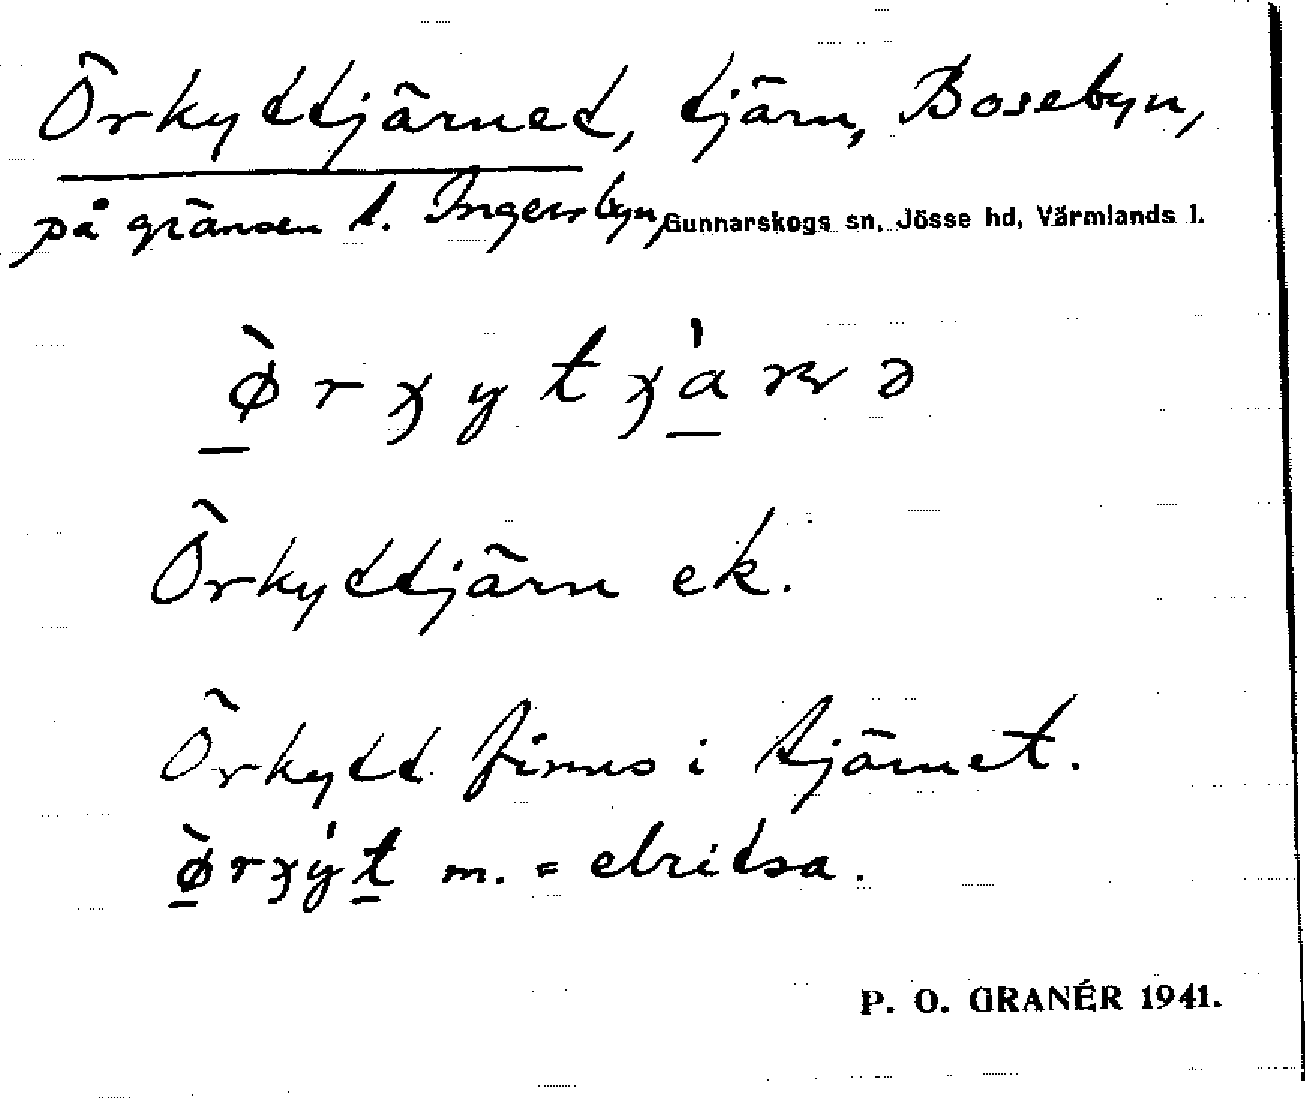 Örkyttjärnet, tjärn, Bosebyn,
på gränsen t. Ingersbyn, Gunnarskogs sn, Jösse hd, Värmlands l.
ø̀rχytχa̍rṇə
Örkyttjärn ek.
Örkytt finns i tjärnet.
ø̀rχy̍t m. = elritsa.
P. O. GRANÉR 1941.